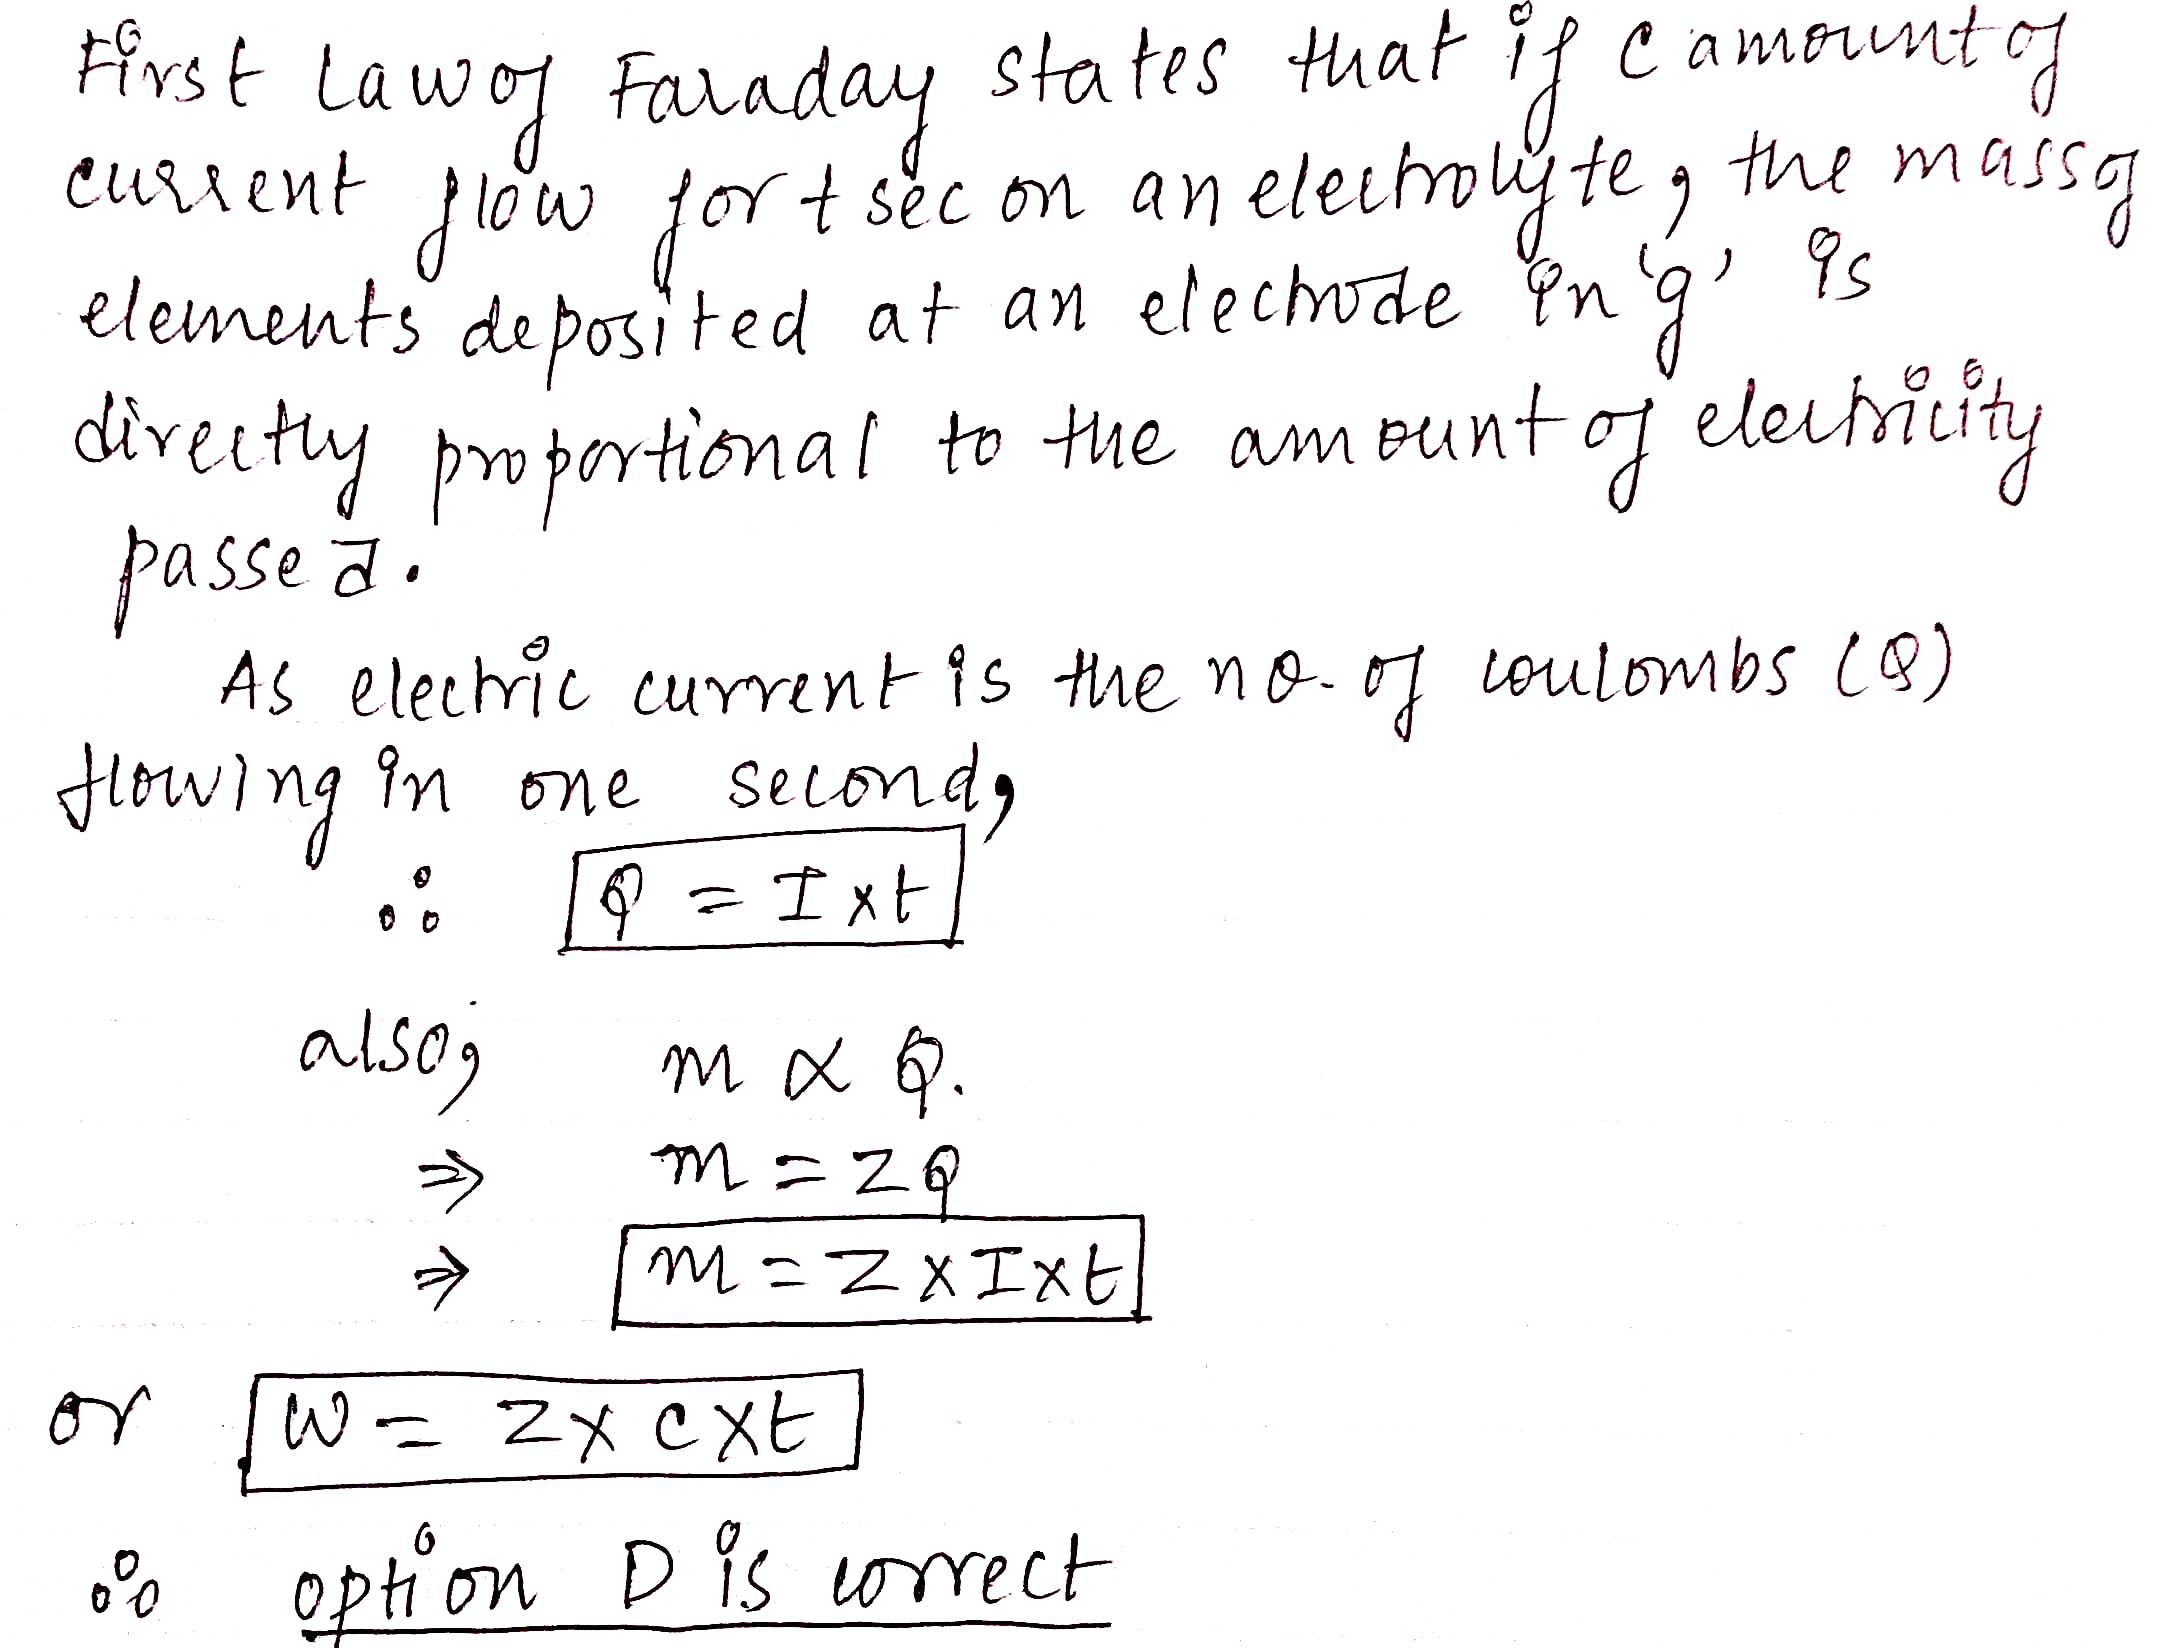 First Law of Faraday states that if C amount of
current flow for t sec on an electrolyte, the mass of
elements deposited at an electrode in 'g' is
directly proportional to the amount of electricity
passed.
As electric current is the no. of coulombs (Q)
flowing in one second,
∴ Q = I x t
also, m ∝ Q.
⇒ m = ZQ
⇒ m = Z x I x t
or W = Z x C x t
∴ option D is correct